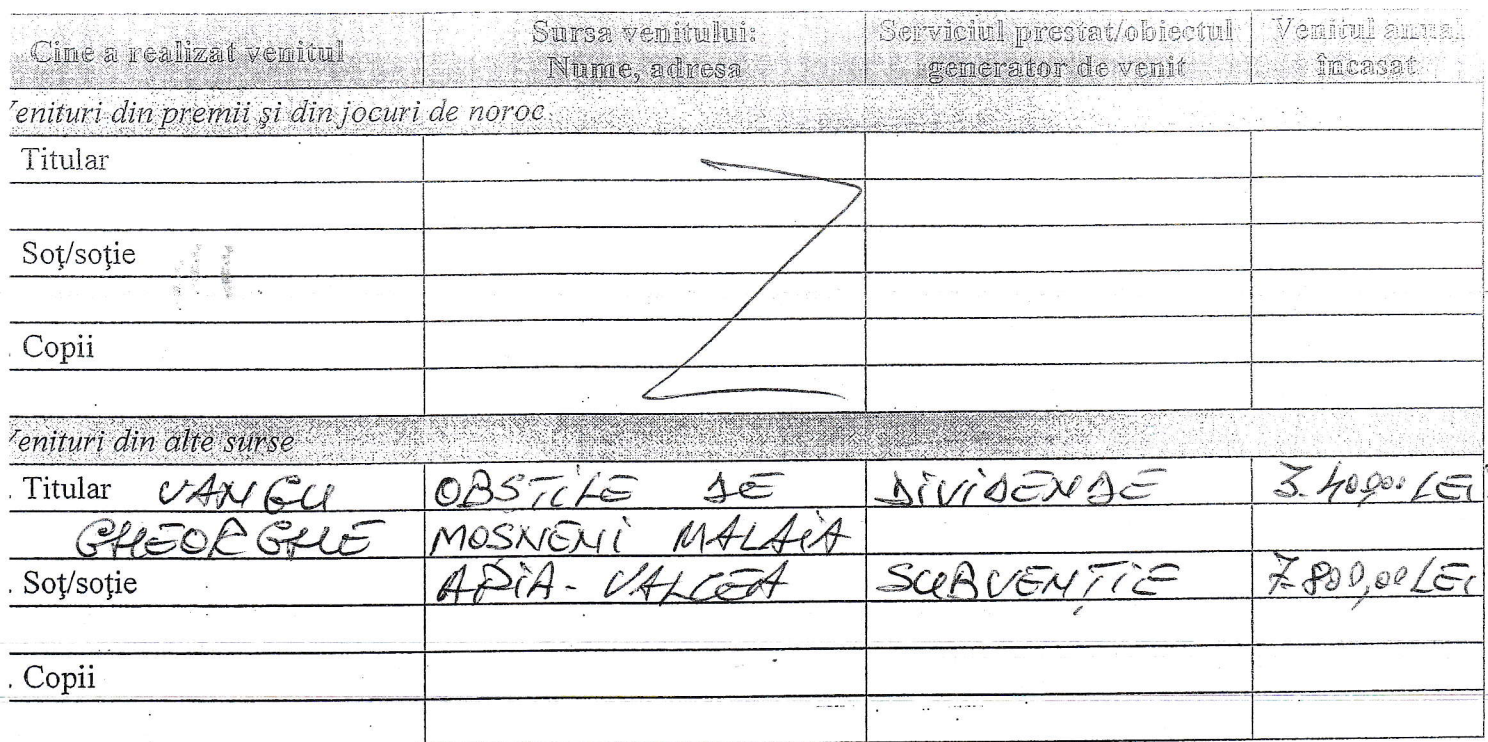 Cine a realizat venitul Sursa venitului: Nume, adresa Serviciul prestat/obiectul generator de venit Venitul anual încasat
enituri din premii şi din jocuri de noroc
Titular
Soţ/soţie
. Copii
enituri din alte surse
. Titular VANGU OBSTILE DE DIVIDENDE 3.400,00 LEI
GHEORGHE MOSNENI MALAIA
. Soţ/soţie APIA - VALCEA SUBVENŢIE 7.800,00 LEI
. Copii